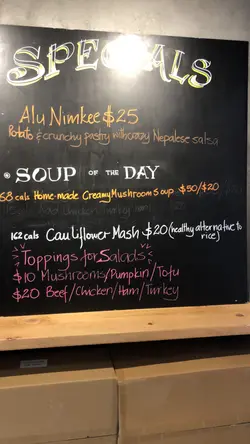 SPECIALS
Alu Nimkee $25
Potato & crunchy pastry with crazy Nepalese salsa
SOUP OF THE DAY
68 cals Home-made Creamy Mushroom Soup $30/$20
162 cals Cauliflower Mash $20 (healthy alternative to rice)
Toppings for Salads
$10 Mushrooms/Pumpkin/Tofu
$20 Beef/Chicken/Ham/Turkey